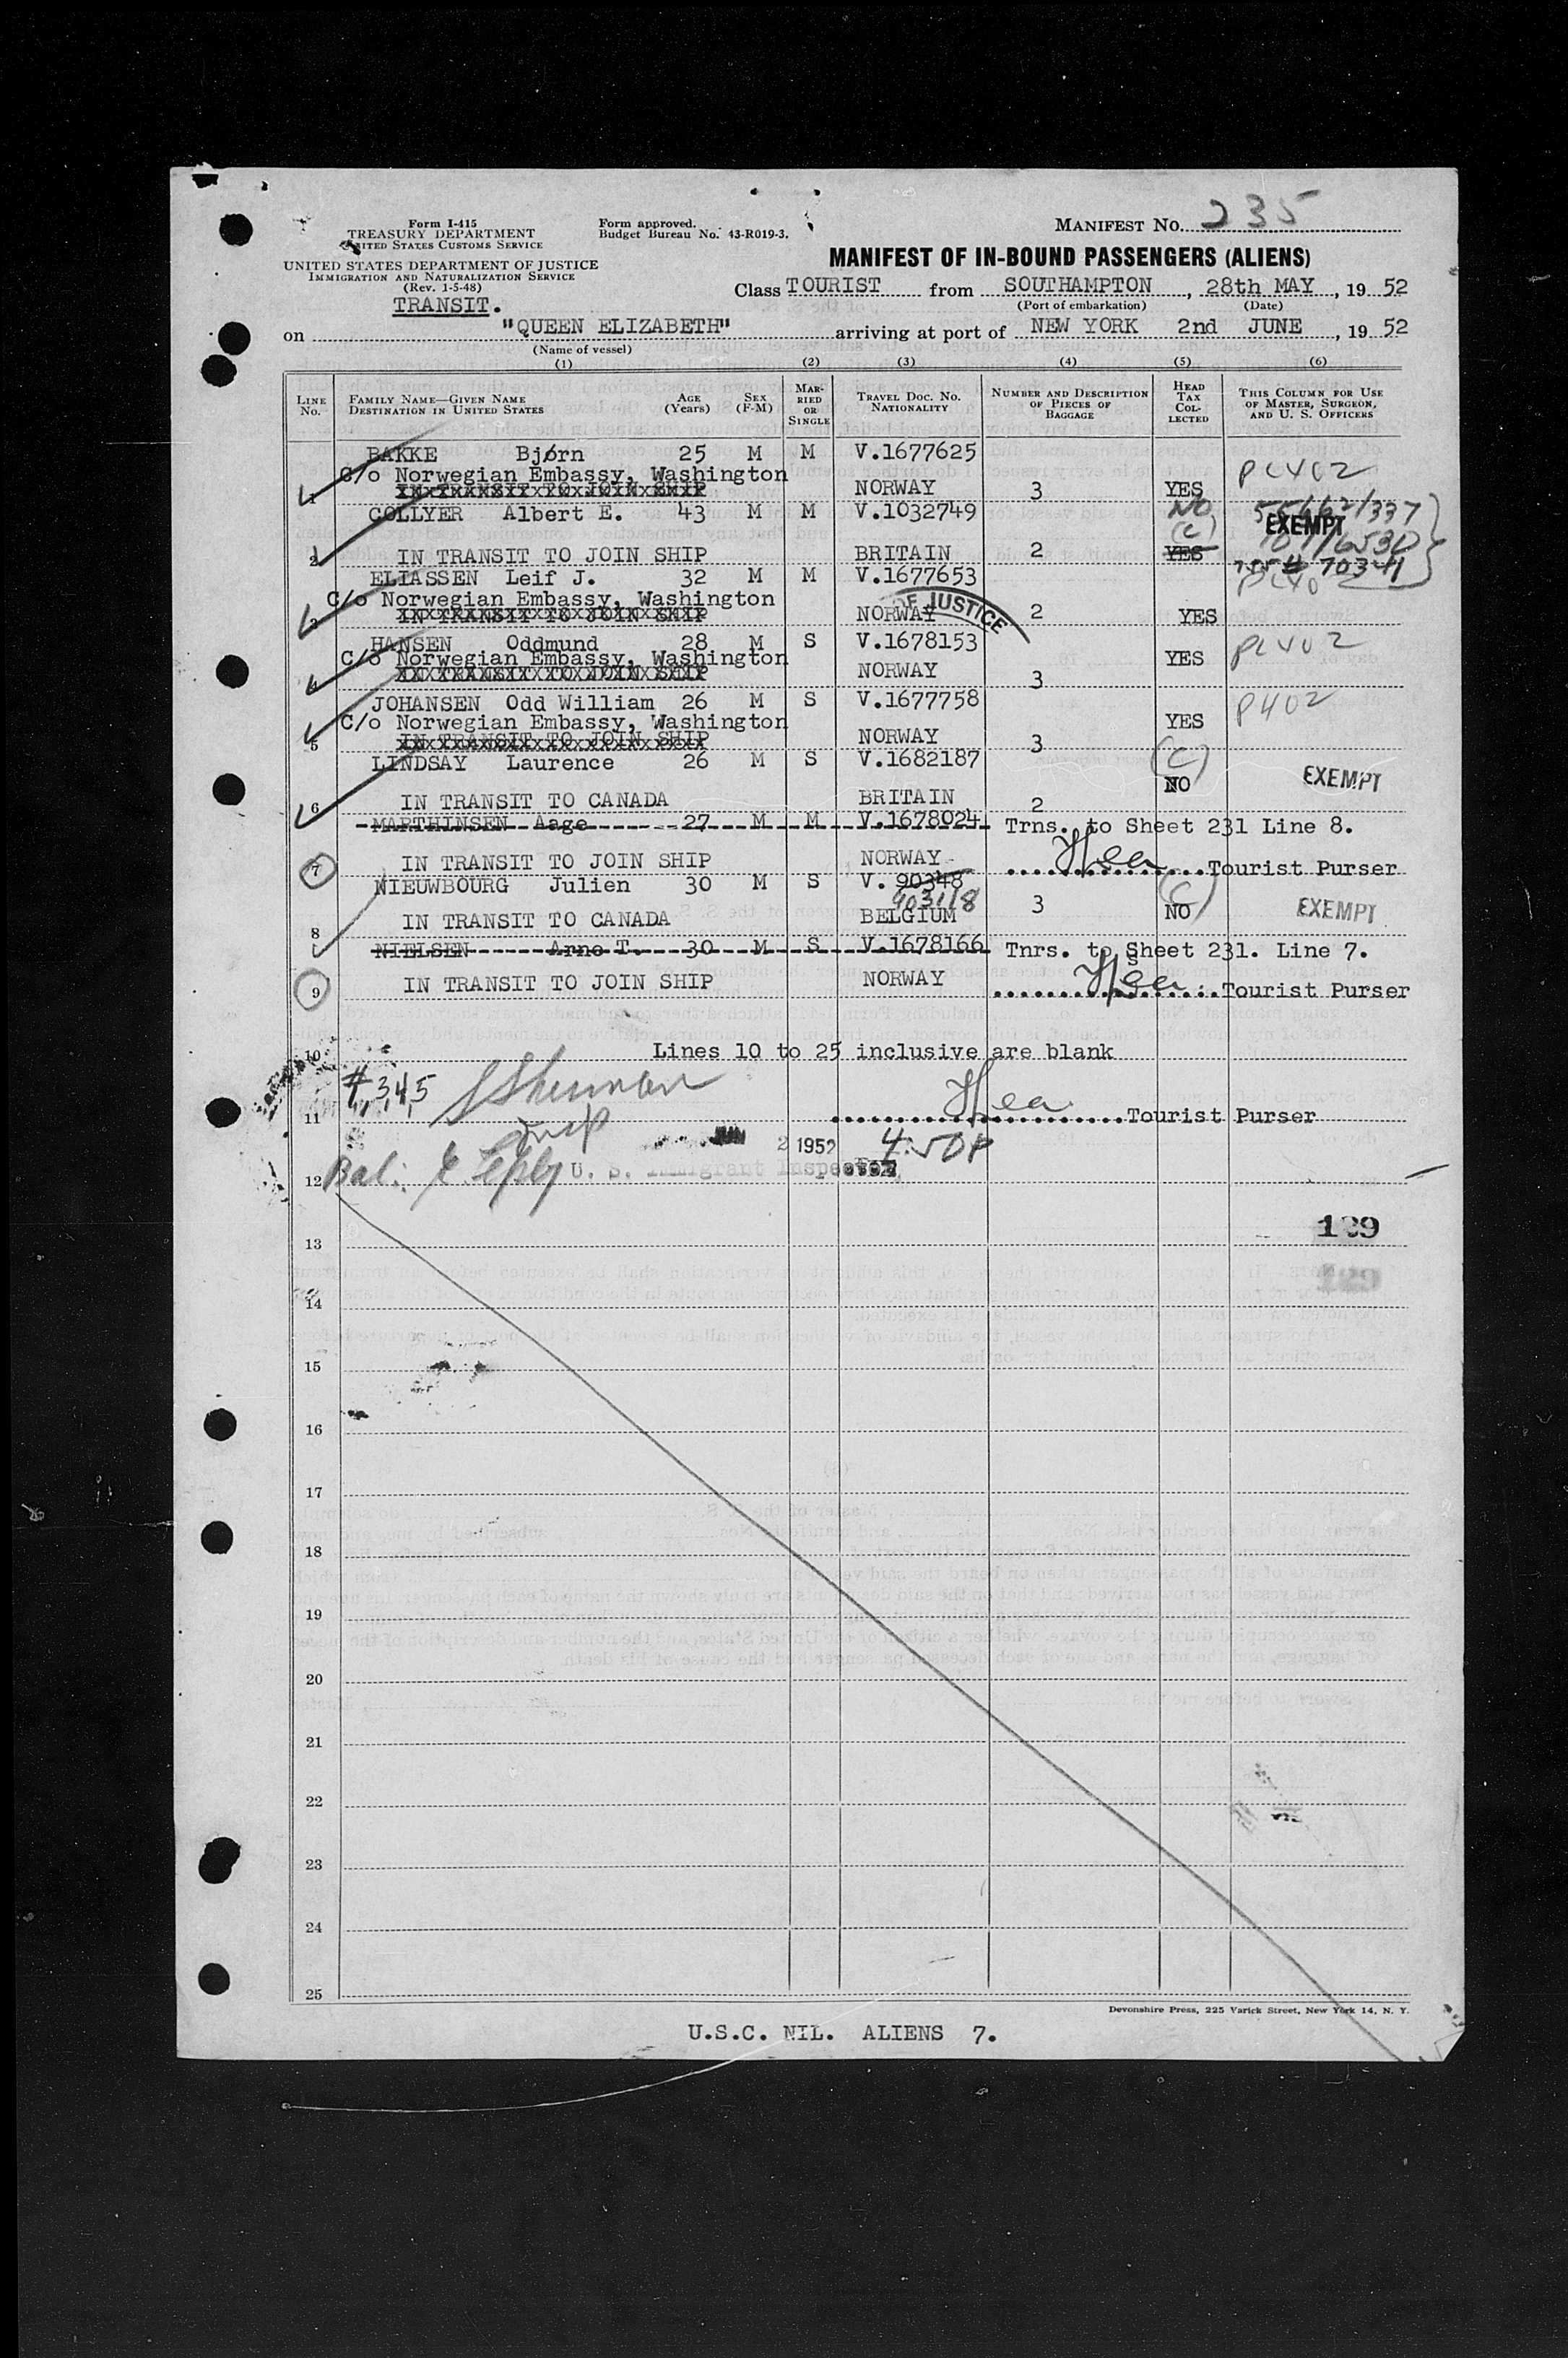 Form I-415
TREASURY DEPARTMENT
UNITED STATES CUSTOMS SERVICE
UNITED STATES DEPARTMENT OF JUSTICE
IMMIGRATION AND NATURALIZATION SERVICE
(Rev. 1-5-48)
TRANSIT.
Form approved.
Budget Bureau No. 43-R019-3.
MANIFEST No. 235
MANIFEST OF IN-BOUND PASSENGERS (ALIENS)
Class TOURIST from SOUTHAMPTON, 28th MAY, 19 52
(Port of embarkation) (Date)
on "QUEEN ELIZABETH" arriving at port of NEW YORK 2nd JUNE, 19 52
(Name of vessel)
(1) (2) (3) (4) (5) (6)
LINE No. FAMILY NAME—GIVEN NAME DESTINATION IN UNITED STATES AGE (Years) SEX (F-M) MARRIED OR SINGLE TRAVEL DOC. NO. NATIONALITY NUMBER AND DESCRIPTION OF PIECES OF BAGGAGE HEAD TAX COLLECTED THIS COLUMN FOR USE OF MASTER, SURGEON, AND U. S. OFFICERS
BAKKE Bjørn 25 M M V.1677625
C/o Norwegian Embassy, Washington PL402
1 IN TRANSIT TO JOIN SHIP NORWAY 3 YES
COLLYER Albert E. 43 M M V.1032749 NO (C) EXEMPT
2 IN TRANSIT TO JOIN SHIP BRITAIN 2 YES
ELIASSEN Leif J. 32 M M V.1677653
C/o Norwegian Embassy, Washington
3 IN TRANSIT TO JOIN SHIP NORWAY 2 YES
OF JUSTICE
HANSEN Oddmund 28 M S V.1678153
C/o Norwegian Embassy, Washington YES PL402
4 IN TRANSIT TO JOIN SHIP NORWAY 3
JOHANSEN Odd William 26 M S V.1677758 P402
C/o Norwegian Embassy, Washington YES
5 IN TRANSIT TO JOIN SHIP NORWAY 3
LINDSAY Laurence 26 M S V.1682187 (C)
NO EXEMPT
6 IN TRANSIT TO CANADA BRITAIN 2
MARTHINSEN Aage 27 M M V.1678024 Trns. to Sheet 231 Line 8.
7 IN TRANSIT TO JOIN SHIP NORWAY Tourist Purser
NIEUWBOURG Julien 30 M S V. 90348
903118
8 IN TRANSIT TO CANADA BELGIUM 3 (C) NO EXEMPT
NIELSEN Arno T. 30 M S V.1678166 Tnrs. to Sheet 231. Line 7.
9 IN TRANSIT TO JOIN SHIP NORWAY Tourist Purser
10 Lines 10 to 25 inclusive are blank
#1,3,4,5 Sherman
11 Tourist Purser
Insp
JUN 2 1952 4:50P
12 Bal: U. S. Immigrant Inspector
129
13
129
14
15
16
17
18
19
20
21
22
23
24
25
Devonshire Press, 225 Varick Street, New York 14, N. Y.
U.S.C. NIL. ALIENS 7.